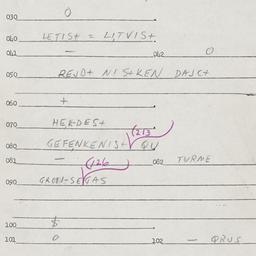 030 0
040 LETIST = LITVIST.
041 — 042 0
050 REJDT NISTKEN DAJCT
060 +
070 HEKDEST
(213
080 GEFENKENIST QU
081 — (126 082 TURME
090 GROON-SE GAS
100 $
101 0 102 — QRUS